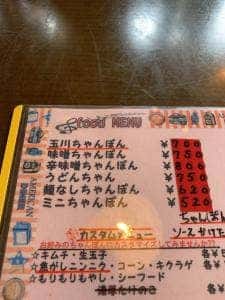 food MENU
玉川ちゃんぽん ¥700
味噌ちゃんぽん ¥750
辛味噌ちゃんぽん ¥800
うどんちゃん ¥750
麺なしちゃんぽん ¥620
ミニちゃんぽん ¥520
ちゃんぽん
カスタムメニュー
ソースかけた
お好みのちゃんぽんにカスタマイズしてみませんか??
☆キムチ・生玉子 各¥
☆焦がしニンニク・コーン・キクラゲ 各¥
☆もりもりもやし・シーフード 各¥